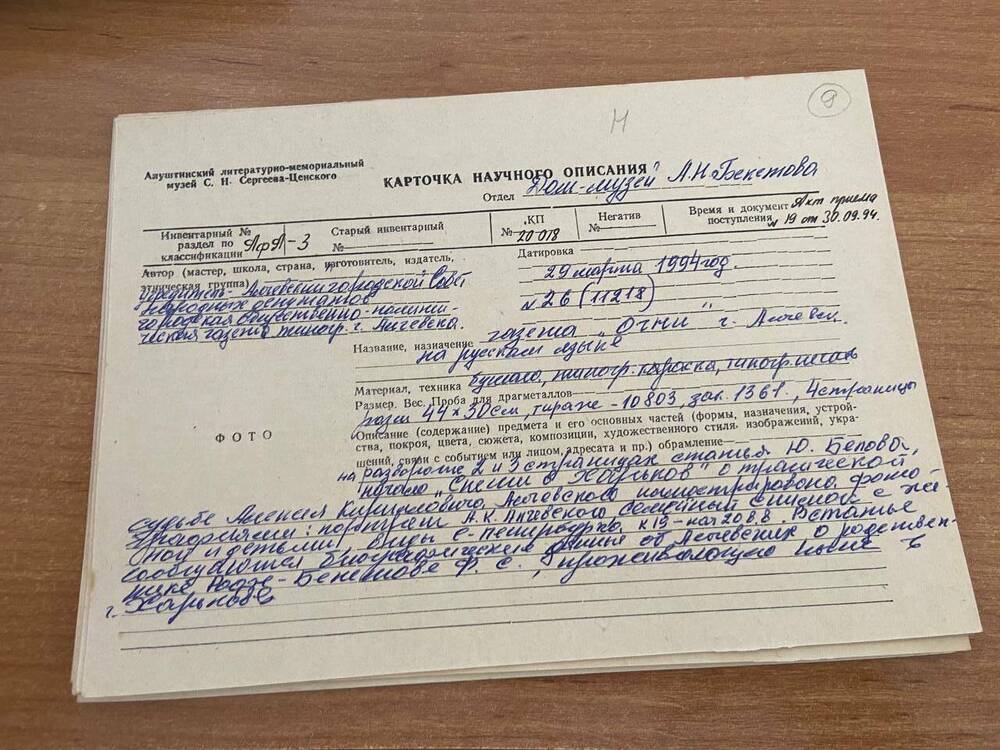 9
Н
Алуштинский литературно-мемориальный
музей С. Н. Сергеева-Ценского
КАРТОЧКА НАУЧНОГО ОПИСАНИЯ
Отдел "Дом-музей А.Н. Бекетова
Инвентарный №
раздел по
классификации АфЛ-3
Старый инвентарный
№
КП
№ 20 018
Негатив
№
Время и документ Акт приема
поступления № 19 от 30.09.94.
Автор (мастер, школа, страна, изготовитель, издатель,
этническая группа)
Учредитель - Алчевский городской Совет
народных депутатов
городская общественно-полити-
ческая газета типогр. г. Алчевска.
Датировка
29 марта 1994 год.
№ 26 (11218)
Название, назначение газета "Огни" г. Алчевск.
на русском языке
Материал, техника бумага, типогр. краска, типогр. печать
Размер. Вес. Проба для драгметаллов
разм 44 х 30 см, тираж - 10803, зак. 1361., 4 страницы
ФОТО
Описание (содержание) предмета и его основных частей (формы, назначения, устрой-
ства, покроя, цвета, сюжета, композиции, художественного стиля, изображений, укра-
шений, связи с событием или лицом, адресата и пр.) обрамление
на развороте 2 и 3 страницах статья Ю. Белова,
начало о трагической
судьбе Алексея Кирилловича Алчевского иллюстрирована фото-
графиями: портрет А.К. Алчевского семейный снимок с же-
ной и детьми, виды С-Петербурга, к 19 - нач 20 в.в. В статье
сообщаются биографические данные об Алчевских о родствен-
нике Бекетове Ф. С., проживающего ныне в
г. Харькове